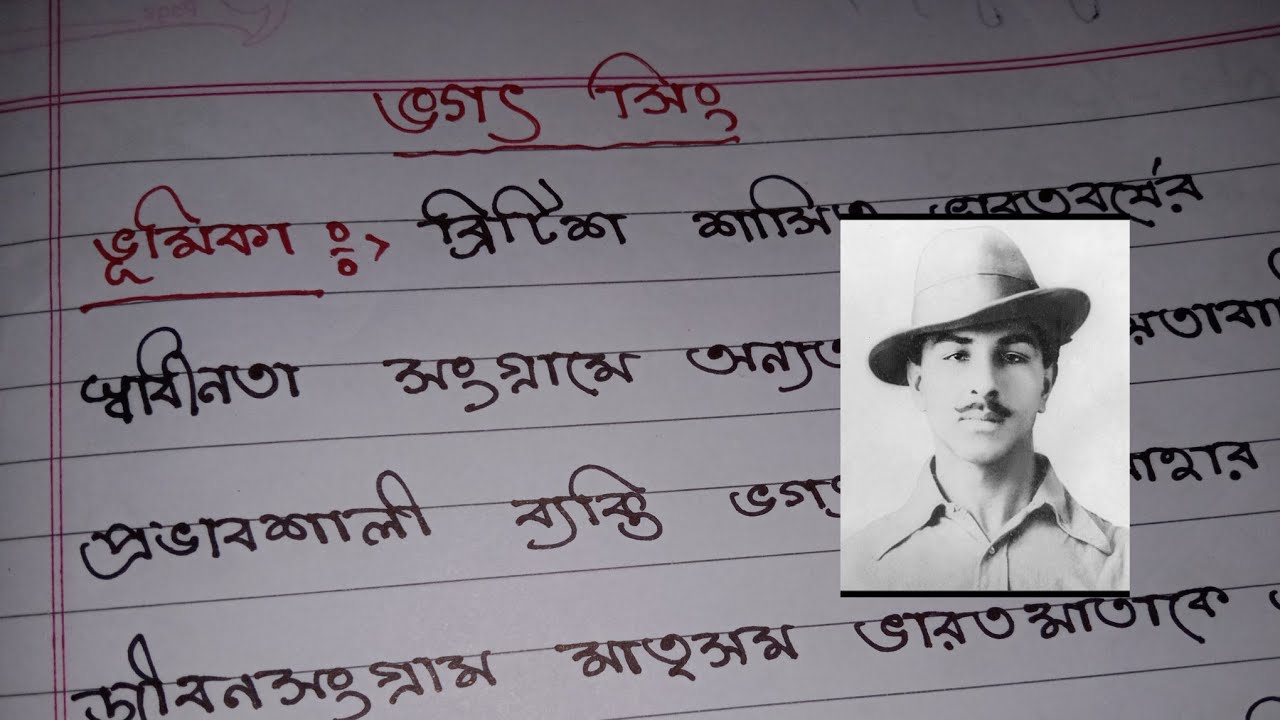 ভগৎ সিং
ভূমিকা :> ব্রিটিশ শাসিত ভারতবর্ষের
স্বাধীনতা সংগ্রামে
প্রভাবশালী ব্যক্তি
জীবনসংগ্রাম মাতৃসম ভারতমাতাকে